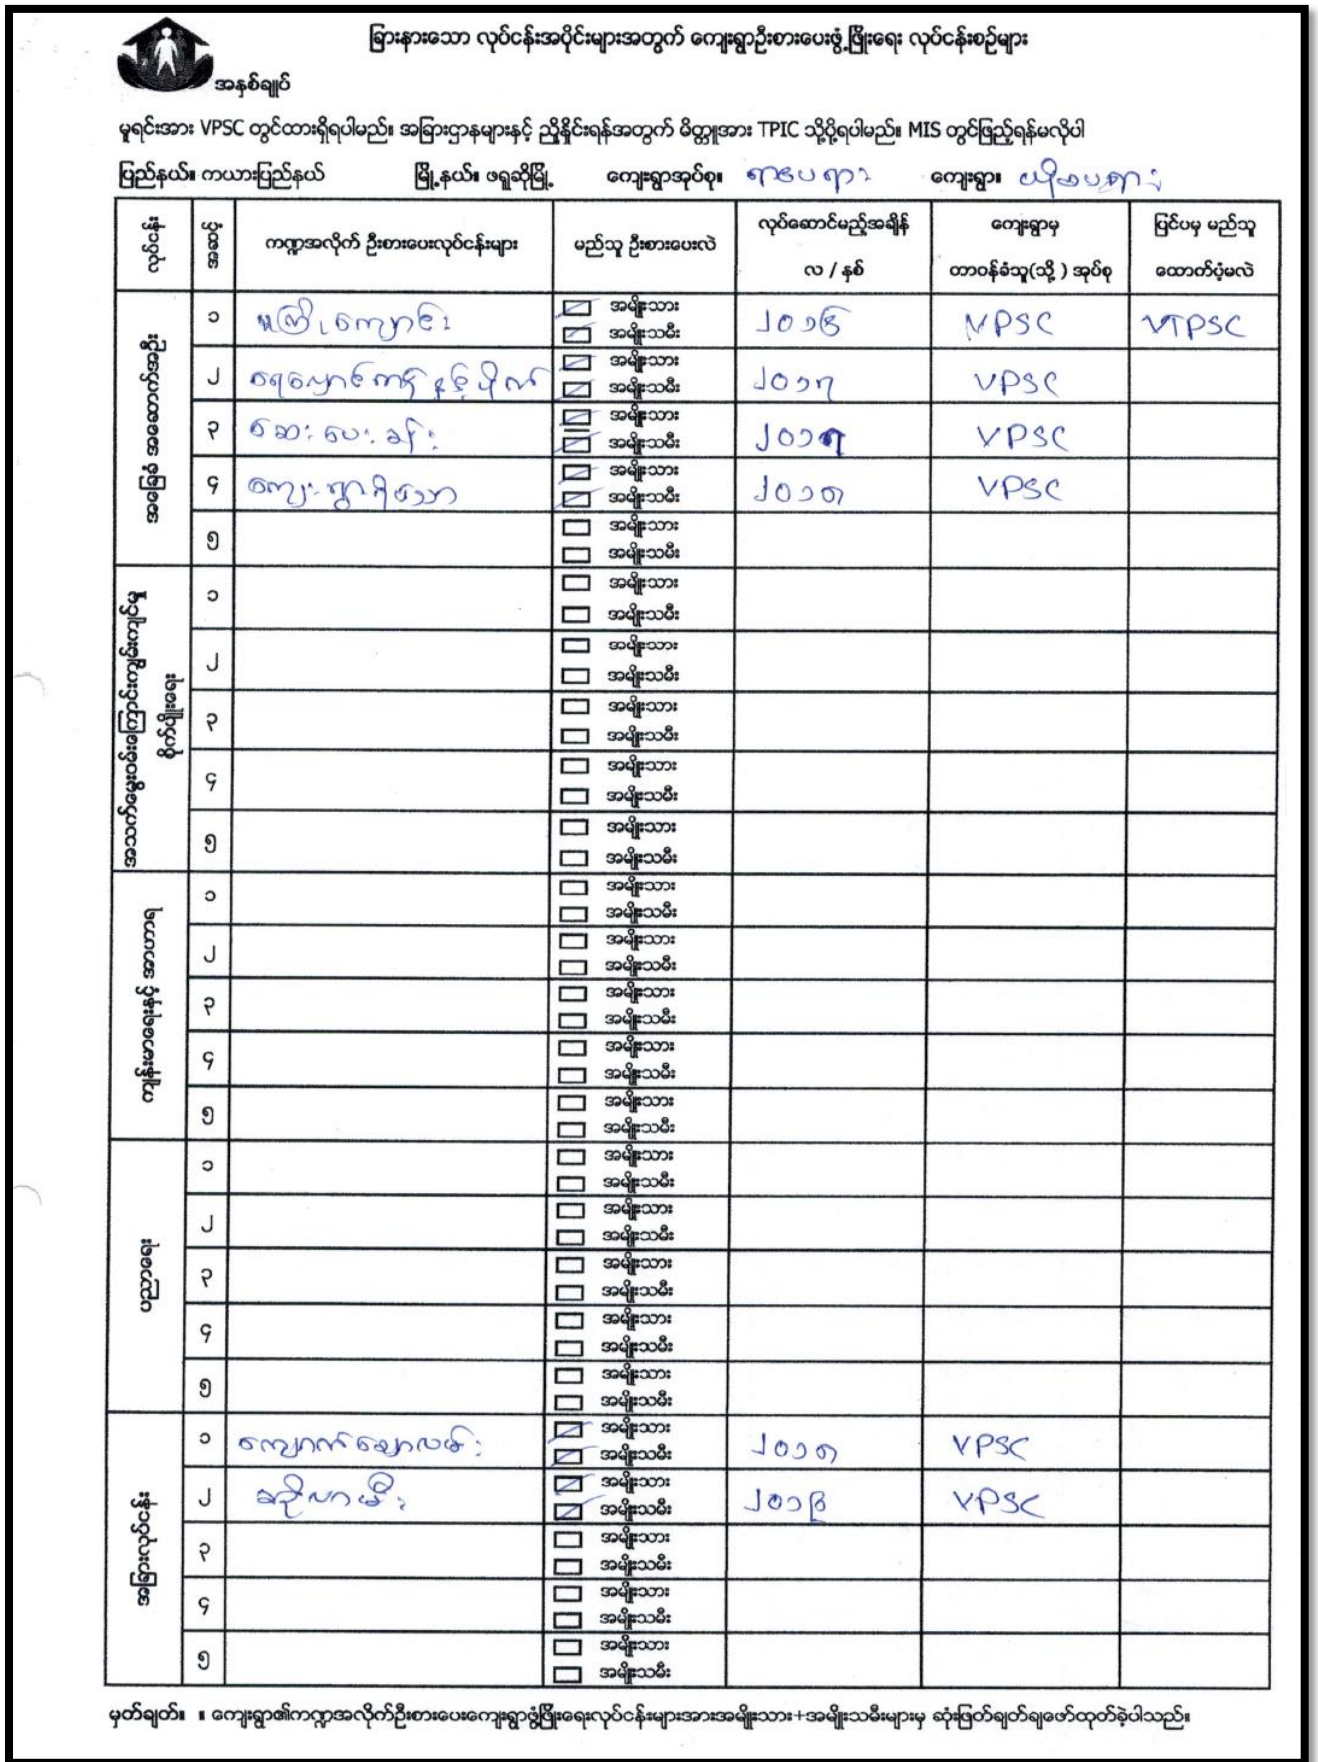 ခြားနားသော လုပ်ငန်းအပိုင်းများအတွက် ကျေးရွာဦးစားပေးဖွံ့ဖြိုးရေး လုပ်ငန်းစဉ်များ
အနှစ်ချုပ်
မူရင်းအား VPSC တွင်ထားရှိရပါမည်။ အခြားဌာနများနှင့် ညှိနှိုင်းရန်အတွက် မိတ္တူအား TPIC သို့ပို့ရပါမည်။ MIS တွင်ဖြည့်ရန်မလိုပါ
ပြည်နယ်။ ကယားပြည်နယ် မြို့နယ်။ ဖရူဆိုမြို့ ကျေးရွာအုပ်စု။ ကျေးရွာ။
လုပ်ငန်း အစဉ် ကဏ္ဍအလိုက် ဦးစားပေးလုပ်ငန်းများ မည်သူ ဦးစားပေးလဲ လုပ်ဆောင်မည့်အချိန် လ / နှစ် ကျေးရွာမှ တာဝန်ခံသူ(သို့ ) အုပ်စု ပြင်ပမှ မည်သူ ထောက်ပံ့မလဲ
အခြေခံ အဆောက်အဦး
၁ မူကြိုကျောင်း အမျိုးသား ၂၀၁၆ VPSC VTPSC
အမျိုးသမီး
၂ ရေလှောင်ကန်နှင့်ပိုက် အမျိုးသား ၂၀၁၇ VPSC
အမျိုးသမီး
၃ ဆေးပေးခန်း အမျိုးသား ၂၀၁၇ VPSC
အမျိုးသမီး
၄ အမျိုးသား ၂၀၁၈ VPSC
အမျိုးသမီး
၅ အမျိုးသား
အမျိုးသမီး
အသက်မွေးဝမ်းကျောင်းလုပ်ငန်းလုပ်ငန်းနှင့် စိုက်ပျိုးရေး
၁ အမျိုးသား
အမျိုးသမီး
၂ အမျိုးသား
အမျိုးသမီး
၃ အမျိုးသား
အမျိုးသမီး
၄ အမျိုးသား
အမျိုးသမီး
၅ အမျိုးသား
အမျိုးသမီး
ကျန်းမာရေးနှင့် အာဟာရ
၁ အမျိုးသား
အမျိုးသမီး
၂ အမျိုးသား
အမျိုးသမီး
၃ အမျိုးသား
အမျိုးသမီး
၄ အမျိုးသား
အမျိုးသမီး
၅ အမျိုးသား
အမျိုးသမီး
ပညာရေး
၁ အမျိုးသား
အမျိုးသမီး
၂ အမျိုးသား
အမျိုးသမီး
၃ အမျိုးသား
အမျိုးသမီး
၄ အမျိုးသား
အမျိုးသမီး
၅ အမျိုးသား
အမျိုးသမီး
အခြားလုပ်ငန်း
၁ ကျောက်ချောလမ်း အမျိုးသား ၂၀၁၈ VPSC
အမျိုးသမီး
၂ ဆိုလာမီး အမျိုးသား ၂၀၁၉ VPSC
အမျိုးသမီး
၃ အမျိုးသား
အမျိုးသမီး
၄ အမျိုးသား
အမျိုးသမီး
၅ အမျိုးသား
အမျိုးသမီး
မှတ်ချက်။ ။ ကျေးရွာ၏ကဏ္ဍအလိုက်ဦးစားပေးကျေးရွာဖွံ့ဖြိုးရေးလုပ်ငန်းများအားအမျိုးသား+အမျိုးသမီးများမှ ဆုံးဖြတ်ချတ်ချဖော်ထုတ်ခဲ့ပါသည်။